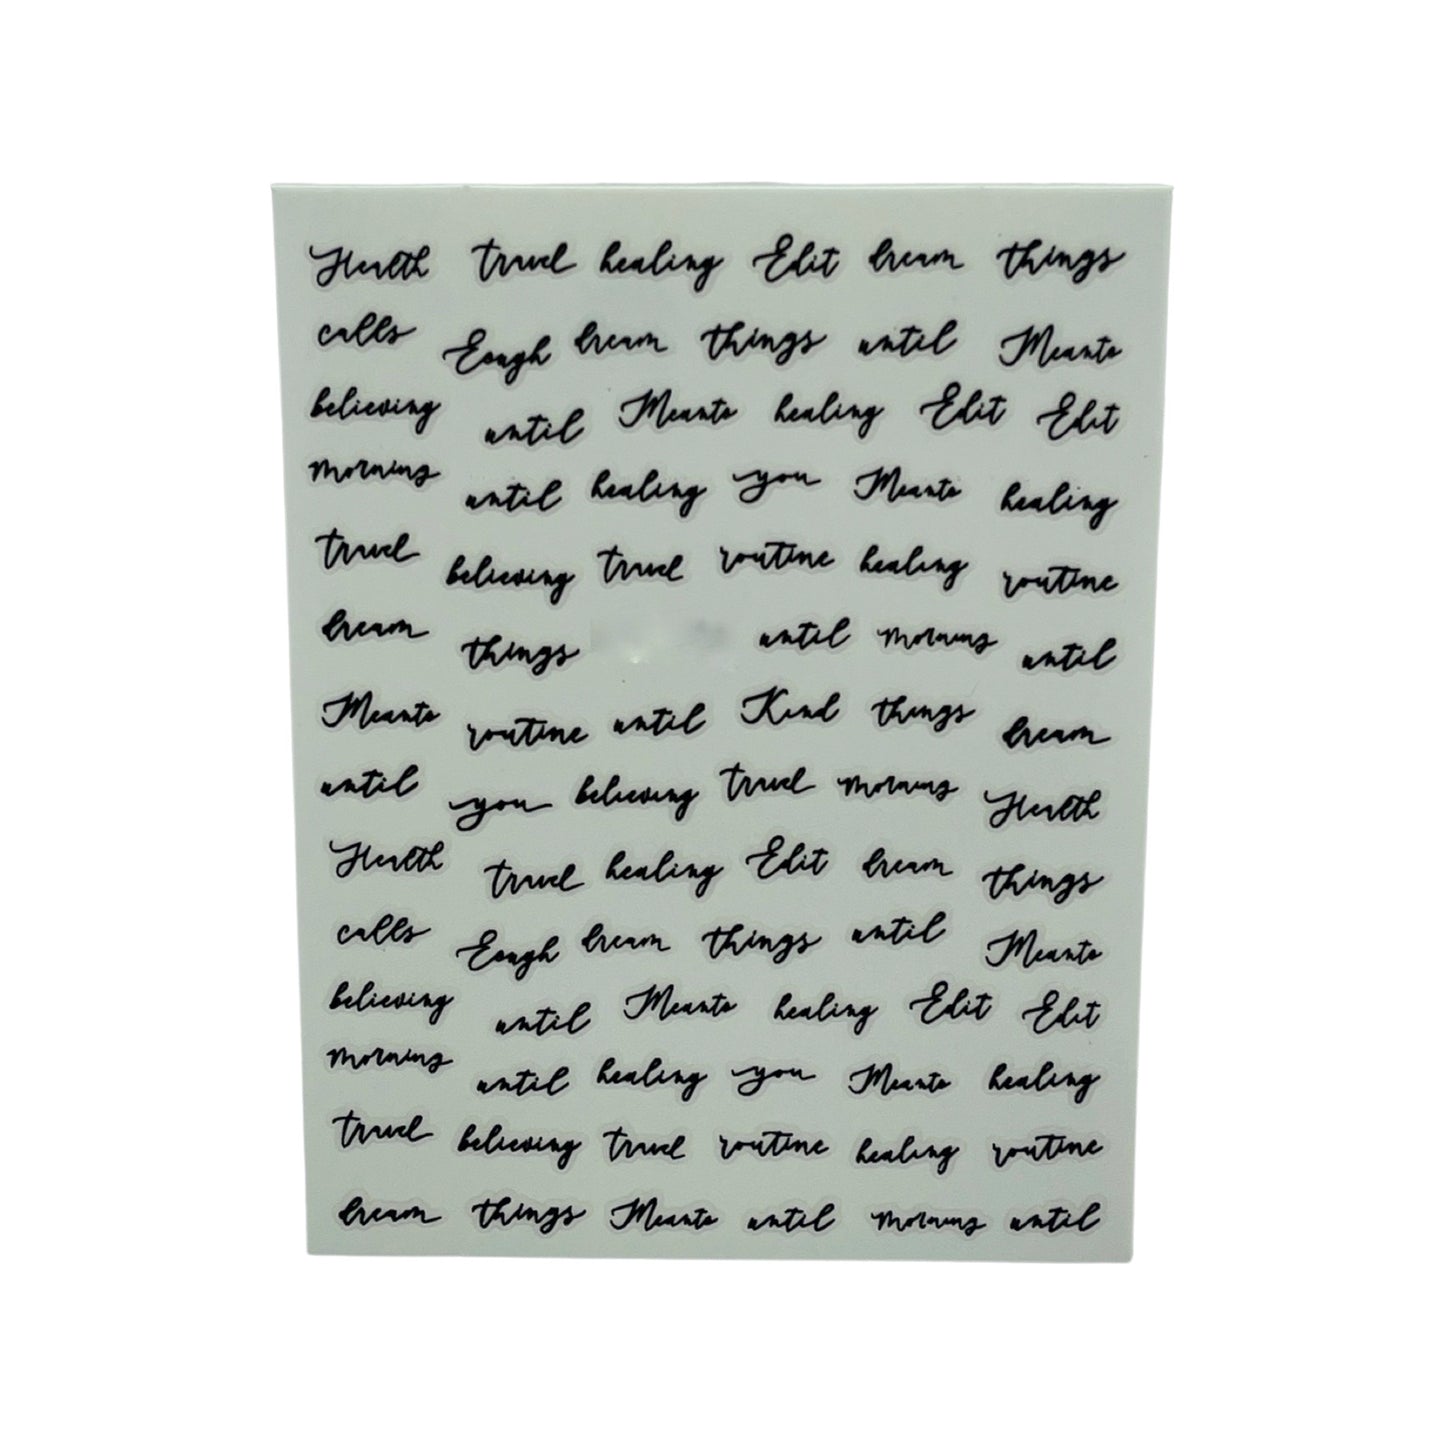 Health travel healing Edit dream things
calls Eough dream things until Meanto
believing until Meanto healing Edit Edit
morning until healing you Meanto healing
travel believing travel routine healing routine
dream things until morning until
Meanto routine until Kind things dream
until you believing travel morning Health
Health travel healing Edit dream things
calls Eough dream things until Meanto
believing until Meanto healing Edit Edit
morning until healing you Meanto healing
travel believing travel routine healing routine
dream things Meanto until morning until